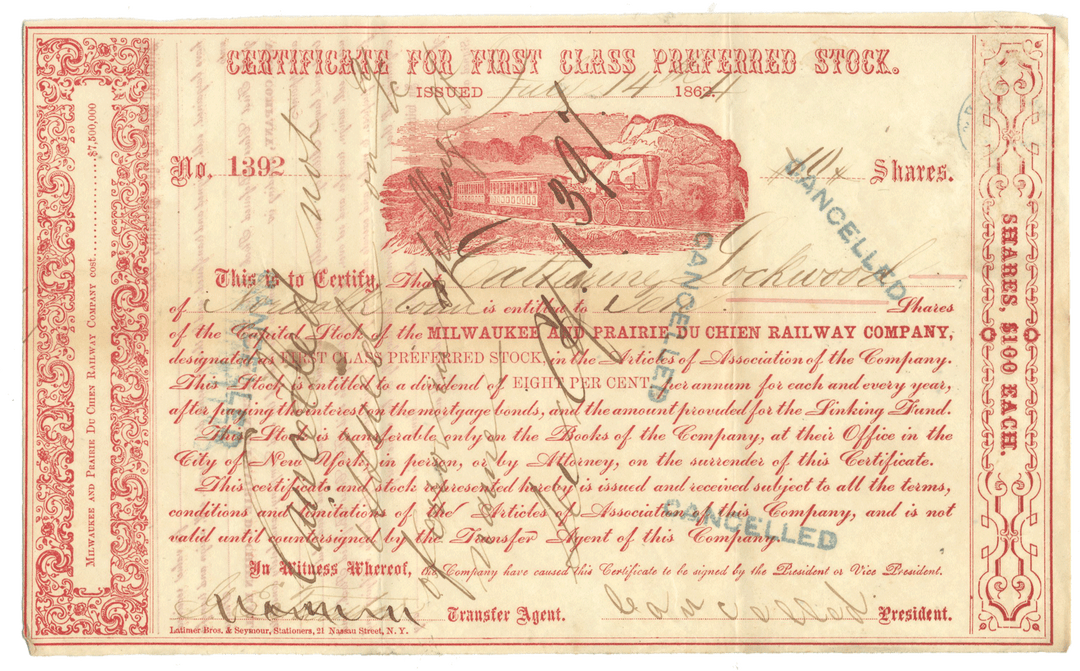 CERTIFICATE FOR FIRST CLASS PREFERRED STOCK.
ISSUED July 14 1862.
No. 1392
10 Shares.
This is to Certify, That Catharine Lockwood
of is entitled to Ten Shares
of the Capital Stock of the MILWAUKEE AND PRAIRIE DU CHIEN RAILWAY COMPANY,
designated as FIRST CLASS PREFERRED STOCK, in the Articles of Association of the Company.
This Stock is entitled to a dividend of EIGHT PER CENT. per annum for each and every year,
after paying the interest on the mortgage bonds, and the amount provided for the Sinking Fund.
This Stock is transferable only on the Books of the Company, at their Office in the
City of New York, in person, or by Attorney, on the surrender of this Certificate.
This certificate and stock represented hereby is issued and received subject to all the terms,
conditions and limitations of the Articles of Association of this Company, and is not
valid until countersigned by the Transfer Agent of this Company.
In Witness Whereof, the Company have caused this Certificate to be signed by the President or Vice President.
Transfer Agent.
Cancelled President.
Latimer Bros. & Seymour, Stationers, 21 Nassau Street, N. Y.
MILWAUKEE AND PRAIRIE DU CHIEN RAILWAY COMPANY cost............$7,500,000
SHARES, $100 EACH.
CANCELLED
CANCELLED
CANCELLED
CANCELLED
Cancelled not